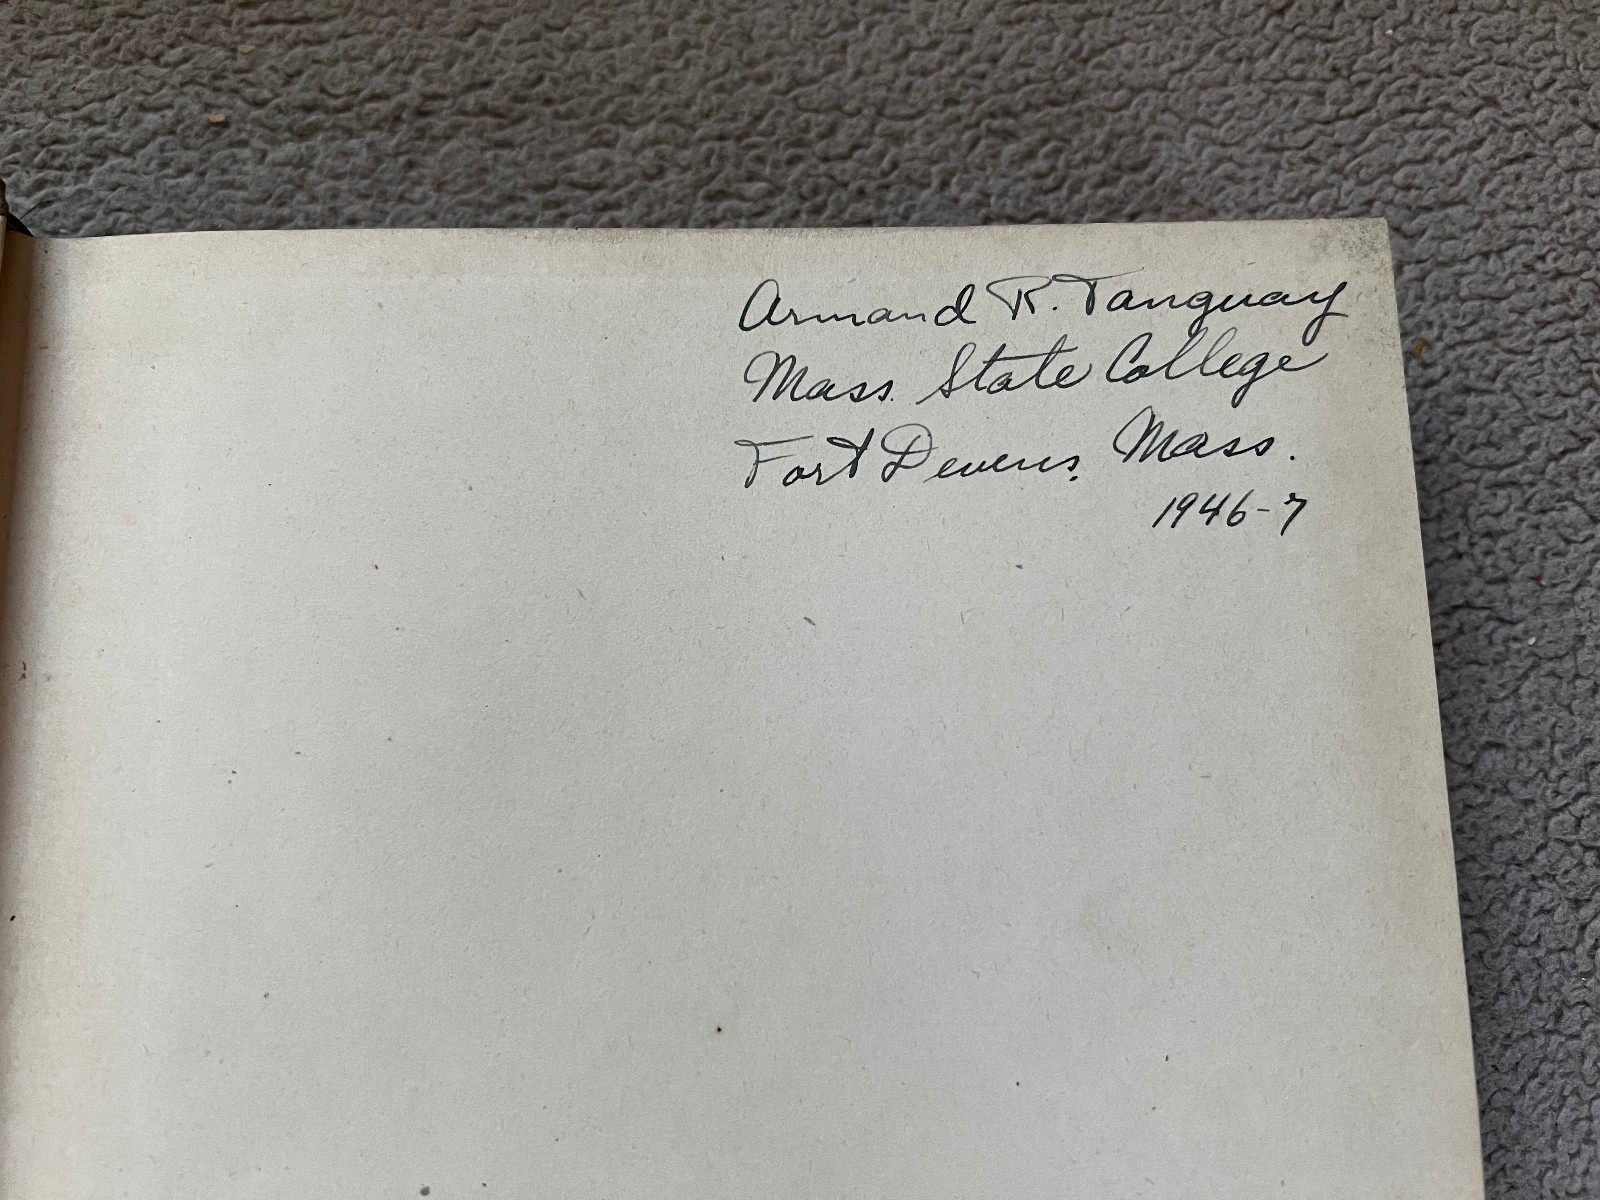 Armand R. Tanguay
Mass. State College
Fort Devens, Mass.
1946-7